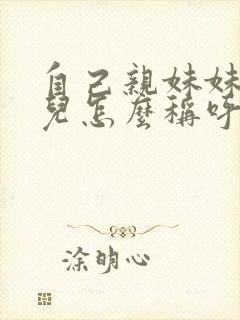 自己親妹妹
兒怎麼稱呼
涂明心